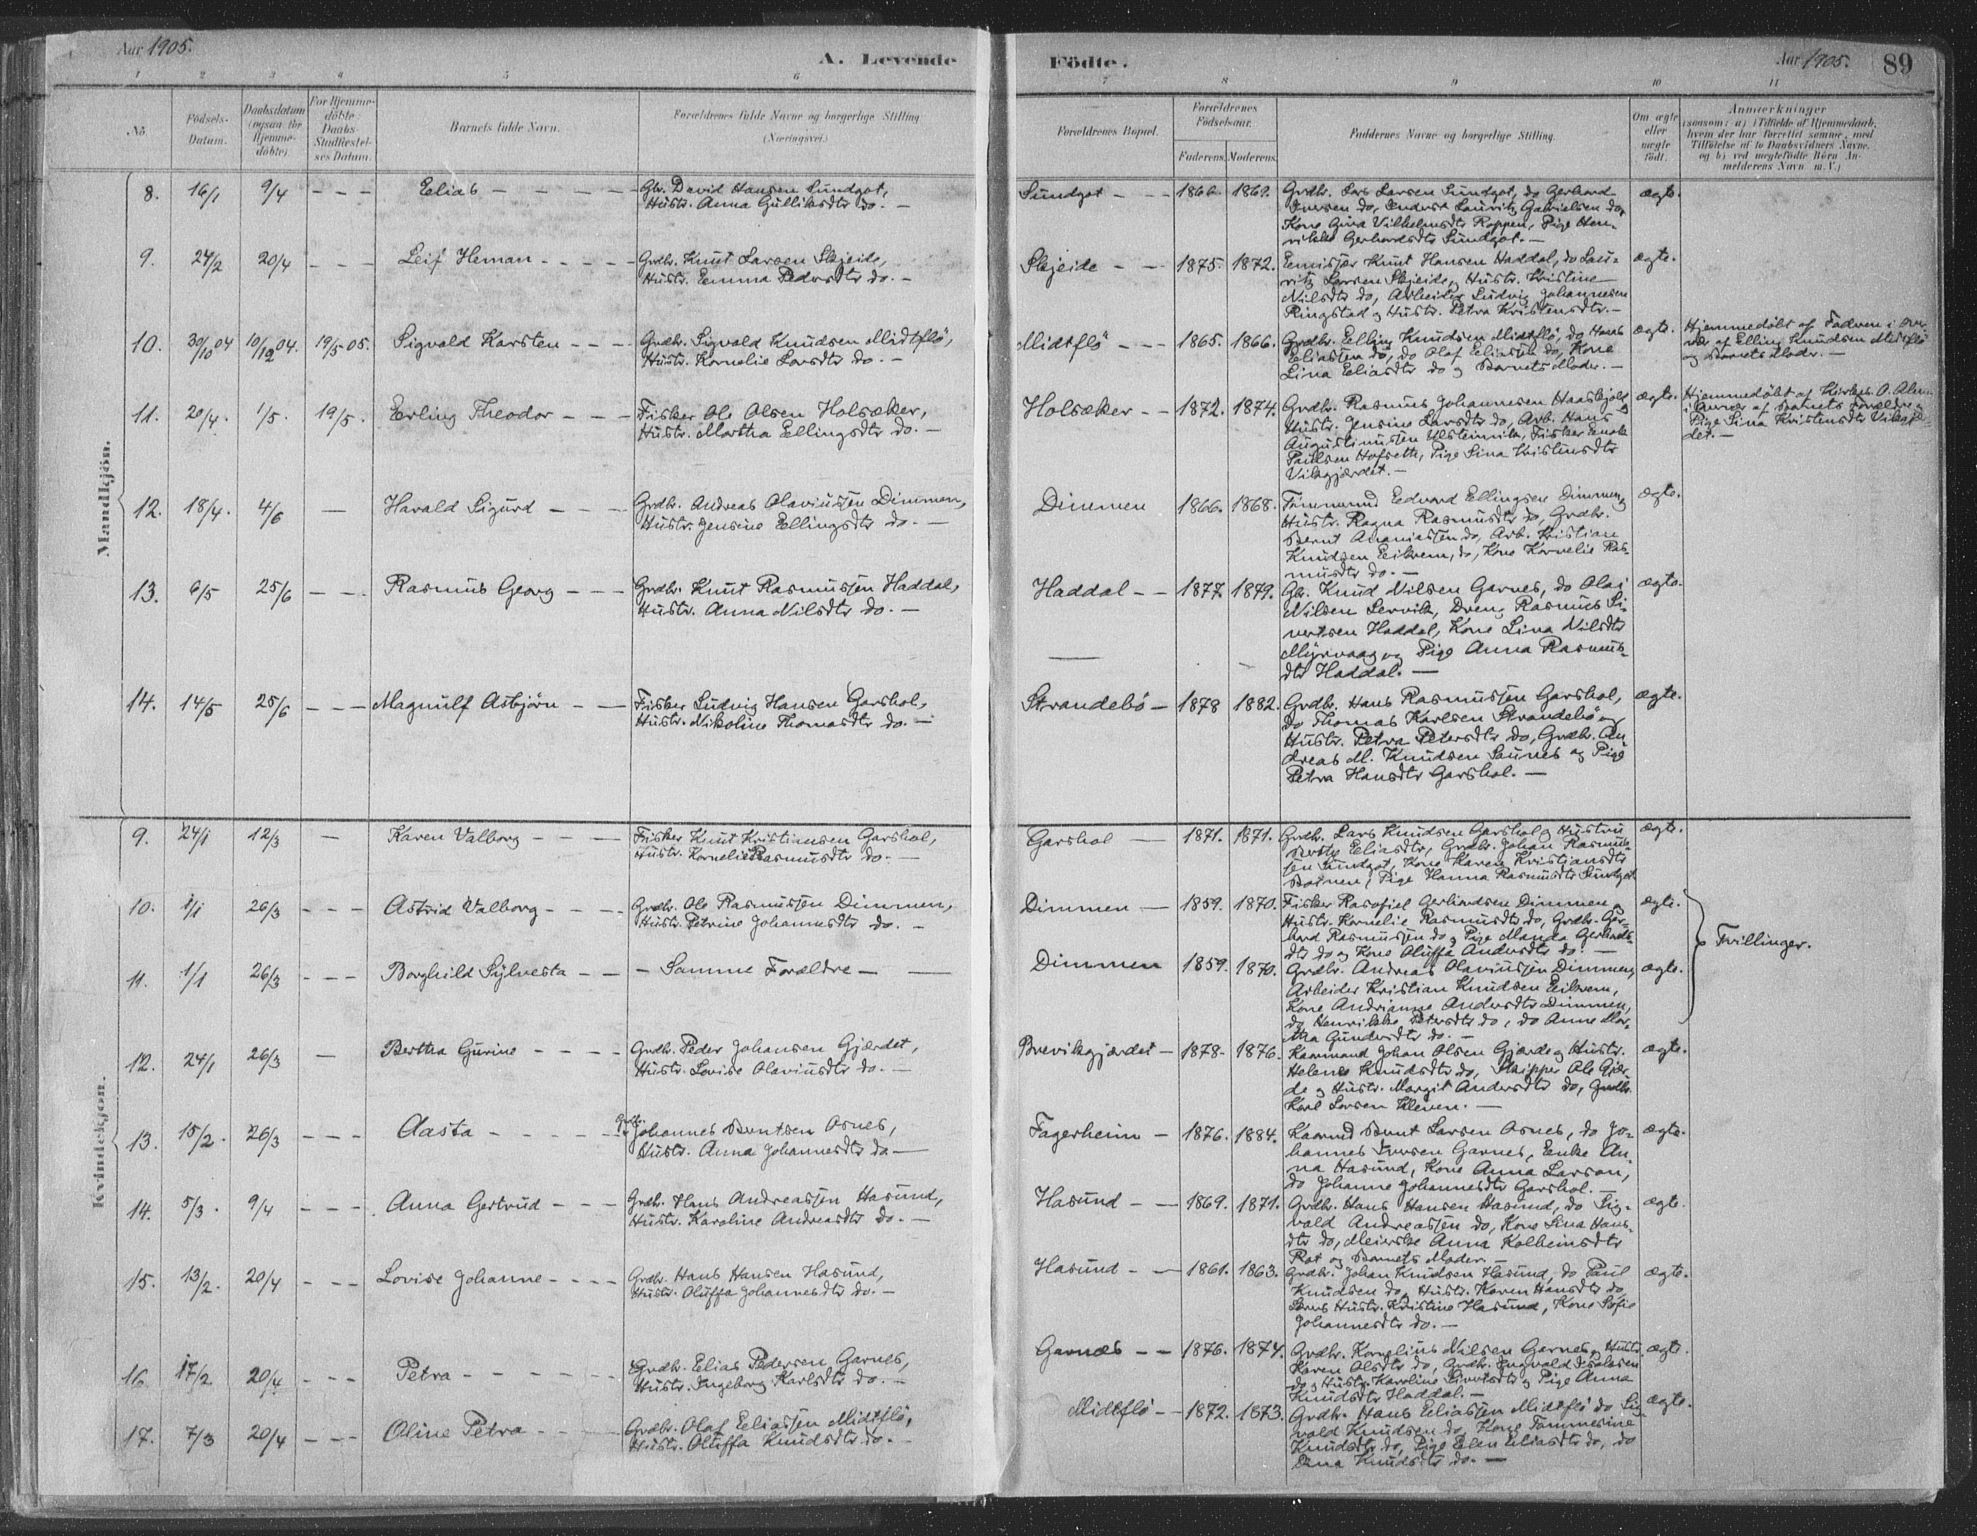 Aar 1905.
A. Levende
Fødte.
Aar 1905.
89
1 2 3 4 5 6 7 8 9 10 11
No.
Fødsels-
Datum.
Daabsdatum
(ogsaa for
Hjemme-
døbte)
For Hjemme-
døbte
Daabs-
Stadfæstel-
ses Datum.
Barnets fulde Navn.
Forældrenes fulde Navne og borgerlige Stilling
(Næringsvei.)
Forældrenes Bopæl.
Forældrenes
Fødselsaar.
Faderens.
Moderens.
Faddernes Navne og borgerlige Stilling.
Om ægte
eller
uægte
født.
Anmærkninger
(saasom: a) i Tilfælde af Hjemmedaab,
hvem der har forrettet samme, med
Tilføielse af to Daabsvidners Navne,
og b) ved uægtefødte Børn An-
melderens Navn m. V.)
Mandkjön.
8. 16/1 9/4 - - - Elias - - - - -
Gbr. David Hansen Sundgot,
Hustr. Anna Gulliksdtr do. -
Sundgot - - 1866. 1869.
Grdbr. Lars Larsen Sundgot, do Gerhard
Iversen do, Lauritz Gabrielsen do,
Kone Gina Vilhelmsdtr Roppen, Pige Hen-
rikke Gerhardsdtr Sundgot. -
ægte.
9. 24/2 20/4 - - - Leif Heman - - - -
Grdbr. Knut Larsen Skjeide,
Hustr. Emma Pedersdtr do. -
Skjeide - - 1875. 1872.
Emissær Knut Hansen Haddal, do Lau-
ritz Larsen Skjeide, Hustr. Kristine
Nilsdtr do, Arbeider Ludvig Johannesen
Ringstad og Hustr. Petra Kristensdtr. -
ægte.
10. 30/10 04 10/12 04. 19/5 05. Sigvald Karsten - - -
Grdbr. Sigvald Knudsen Midtflø,
Hustr. Kornelie Larsdtr do. -
Midtflø - - - 1865. 1866.
Grdbr. Elling Knudsen Midtflø, do Hans
Eliassen do, do Olaf Eliassen do, Kone
Lina Eliasdtr do og Barnets Moder. -
ægte.
Hjemmedøbt af Fadren i Over-
vær af Elling Knudsen Midtflø
og Barnets Moder. -
11. 20/4. 1/5. 19/5. Erling Theodor - - -
Fisker Ole Olsen Holsæker,
Hustr. Martha Ellingsdtr do. -
Holsæker - - 1872. 1874.
Grdbr. Rasmus Johannesen Haaskjold,
Hustr. Jensine Larsdtr do, Arb. Hans
Augustinussen Ulsteinvik, Fisker Enok
Paulsen Hofseth, Pige Sina Kristensdtr
Vikegjærdet. -
ægte.
Hjemmedøbt af Kirkes. O. Alme
i Nærvær af Barnets Forældre og
Pige Sina Kristensdtr Vikegjær-
det. -
12. 18/4. 4/6 - Harald Sigurd - - -
Grdbr. Andreas Olaviussen Dimmen,
Hustr. Jensine Ellingsdtr do. -
Dimmen 1866. 1868.
Tømmermd Edvard Ellingsen Dimmen,
Hustr. Ragna Rasmusdtr do, Grdbr.
Bernt Ananiassen do, Arb. Kristian
Knudsen Eikrem, do, Kone Kornelie Ras-
musdtr do. -
ægte.
13. 6/5 25/6 - - - Rasmus Georg - - -
Grdbr. Knut Rasmussen Haddal,
Hustr. Anna Nilsdtr do. -
Haddal - - 1877. 1879.
Gb. Knud Nilsen Garnes, do Olai
Nilsen Lervik, Dreng Rasmus Si-
vertsen Haddal, Kone Lina Nilsdtr
Myrvaag og Pige Anna Rasmus-
dtr Haddal. -
ægte.
14. 14/5 25/6 - - - Magnulf Asbjørn - -
Fisker Ludvig Hansen Garshol,
Hustr. Nikoline Thomasdtr do. -
Strandebø - 1878 1882.
Grdbr. Hans Rasmussen Garshol,
do Thomas Karlsen Strandebø og
Hustr. Petra Petersdtr do, Grdbr. An-
dreas M. Knudsen Saunes og Pige
Petra Hansdtr Garshol. -
ægte.
Kvindekjön.
9. 24/1 12/3 - Karen Valborg - - -
Fisker Knut Kristiansen Garshol,
Hustr. Kornelie Rasmusdtr do. -
Garshol - 1871. 1871.
Grdbr. Lars Knudsen Garshol og Hustru
Eliasdtr, Grdbr. Johan Rasmus-
sen Sundgot, Kone Karen Kristiansdtr
Pige Hanna Rasmusdtr Sundgot
ægte.
10. 1/1 26/3 - - - Astrid Valborg - - - -
Grdbr. Ole Rasmussen Dimmen,
Hustr. Petrine Johannesdtr do. -
Dimmen - 1859. 1870.
Fisker Rasofiel Gerhardsen Dimmen,
Hustr. Kornelie Rasmusdtr do, Grdbr. Ger-
hard Rasmussen do, Pige Manda Gerhards-
dtr do og Kone Oluffa Andersdtr do. -
ægte.
Tvillinger.
11. 1/1 26/3 - - - Borghild Sylvesta - -
- Samme Forældre - -
Dimmen 1859. 1870.
Grdbr. Andreas Olaviussen Dimmen,
Arbeider Kristian Knudsen Eikrem,
Kone Andrianne Andersdtr Dimmen,
do Henrikke Petersdtr do, do Anne Mar-
tha Gundersdtr do. -
ægte.
12. 24/1 26/3 - Bertha Gurine - - - -
Grdbr. Peder Johansen Gjærdet,
Hustr. Lovise Olaviusdtr do. -
Brevikgjærdet - 1878- 1876.
Kaarmand Johan Olsen Gjærde og Hustr.
Helene Knudsdtr do, Skipper Ole Gjær-
de og Hustr. Margit Andersdtr do, Grdbr.
Karl Larsen Kleven. -
ægte.
13. 15/2. 26/3 - - - Aasta - - - - -
Grdbr. Johannes Berntsen Osnes,
Hustr. Anna Johannesdtr do -
Fagerheim - 1876. 1884.
Kaarmd Bernt Larsen Osnes, do Jo-
hannes Iversen Garnes, Enke An-
na Hasund, Kone Anna Larsen,
do Johanne Johannesdtr Garshol. -
ægte.
14. 5/3. 9/4 - - - Anna Gertrud - - -
Grdbr. Hans Andreassen Hasund,
Hustr. Karoline Andreasdtr do. -
Hasund - - 1869. 1871.
Grdbr. Hans Hansen Hasund, do Sig-
vald Andreassen do, Kone Lina Hans-
dtr do, Meierske Anna Kolbeinsdtr
Røt og Barnets Moder. -
ægte.
15. 13/2. 20/4 - - - Lovise Johanne - - - -
Grdbr. Hans Hansen Hasund,
Hustr. Oluffa Johannesdtr do. -
Hasund - - 1861. 1863.
Grdbr. Johan Knudsen Hasund, do Paul
Knudsen do, Hustr. Karen Hansdtr do,
Hustr. Kristine Hasund, Kone Sofie
Johannesdtr do. -
ægte.
16. 17/2. 20/4 - - - Petra - - - - - -
Grdbr. Elias Pedersen Garnes,
Hustr. Ingeborg Karlsdtr do. -
Garnes - - 1876. 1874.
Grdbr. Kornelius Nilsen Garnes, Hustr.
Karen Olsdtr do, Grdbr. Ingvald
do, Hustr. Karoline Sivertsdtr og Pige Anna
Knudsdtr Haddal. -
ægte.
17. 7/3 20/4 - - - Oline Petra - - - -
Grdbr. Olaf Eliassen Midtflø,
Hustr. Oluffa Knudsdtr do. -
Midtflø - 1872. 1873.
Grdbr. Hans Eliassen Midtflø do Sig-
vald Knudsen do, Kone Tommesine
Knudsdtr do, Pige Elen Eliasdtr do, do
Knudsdtr do. -
ægte.